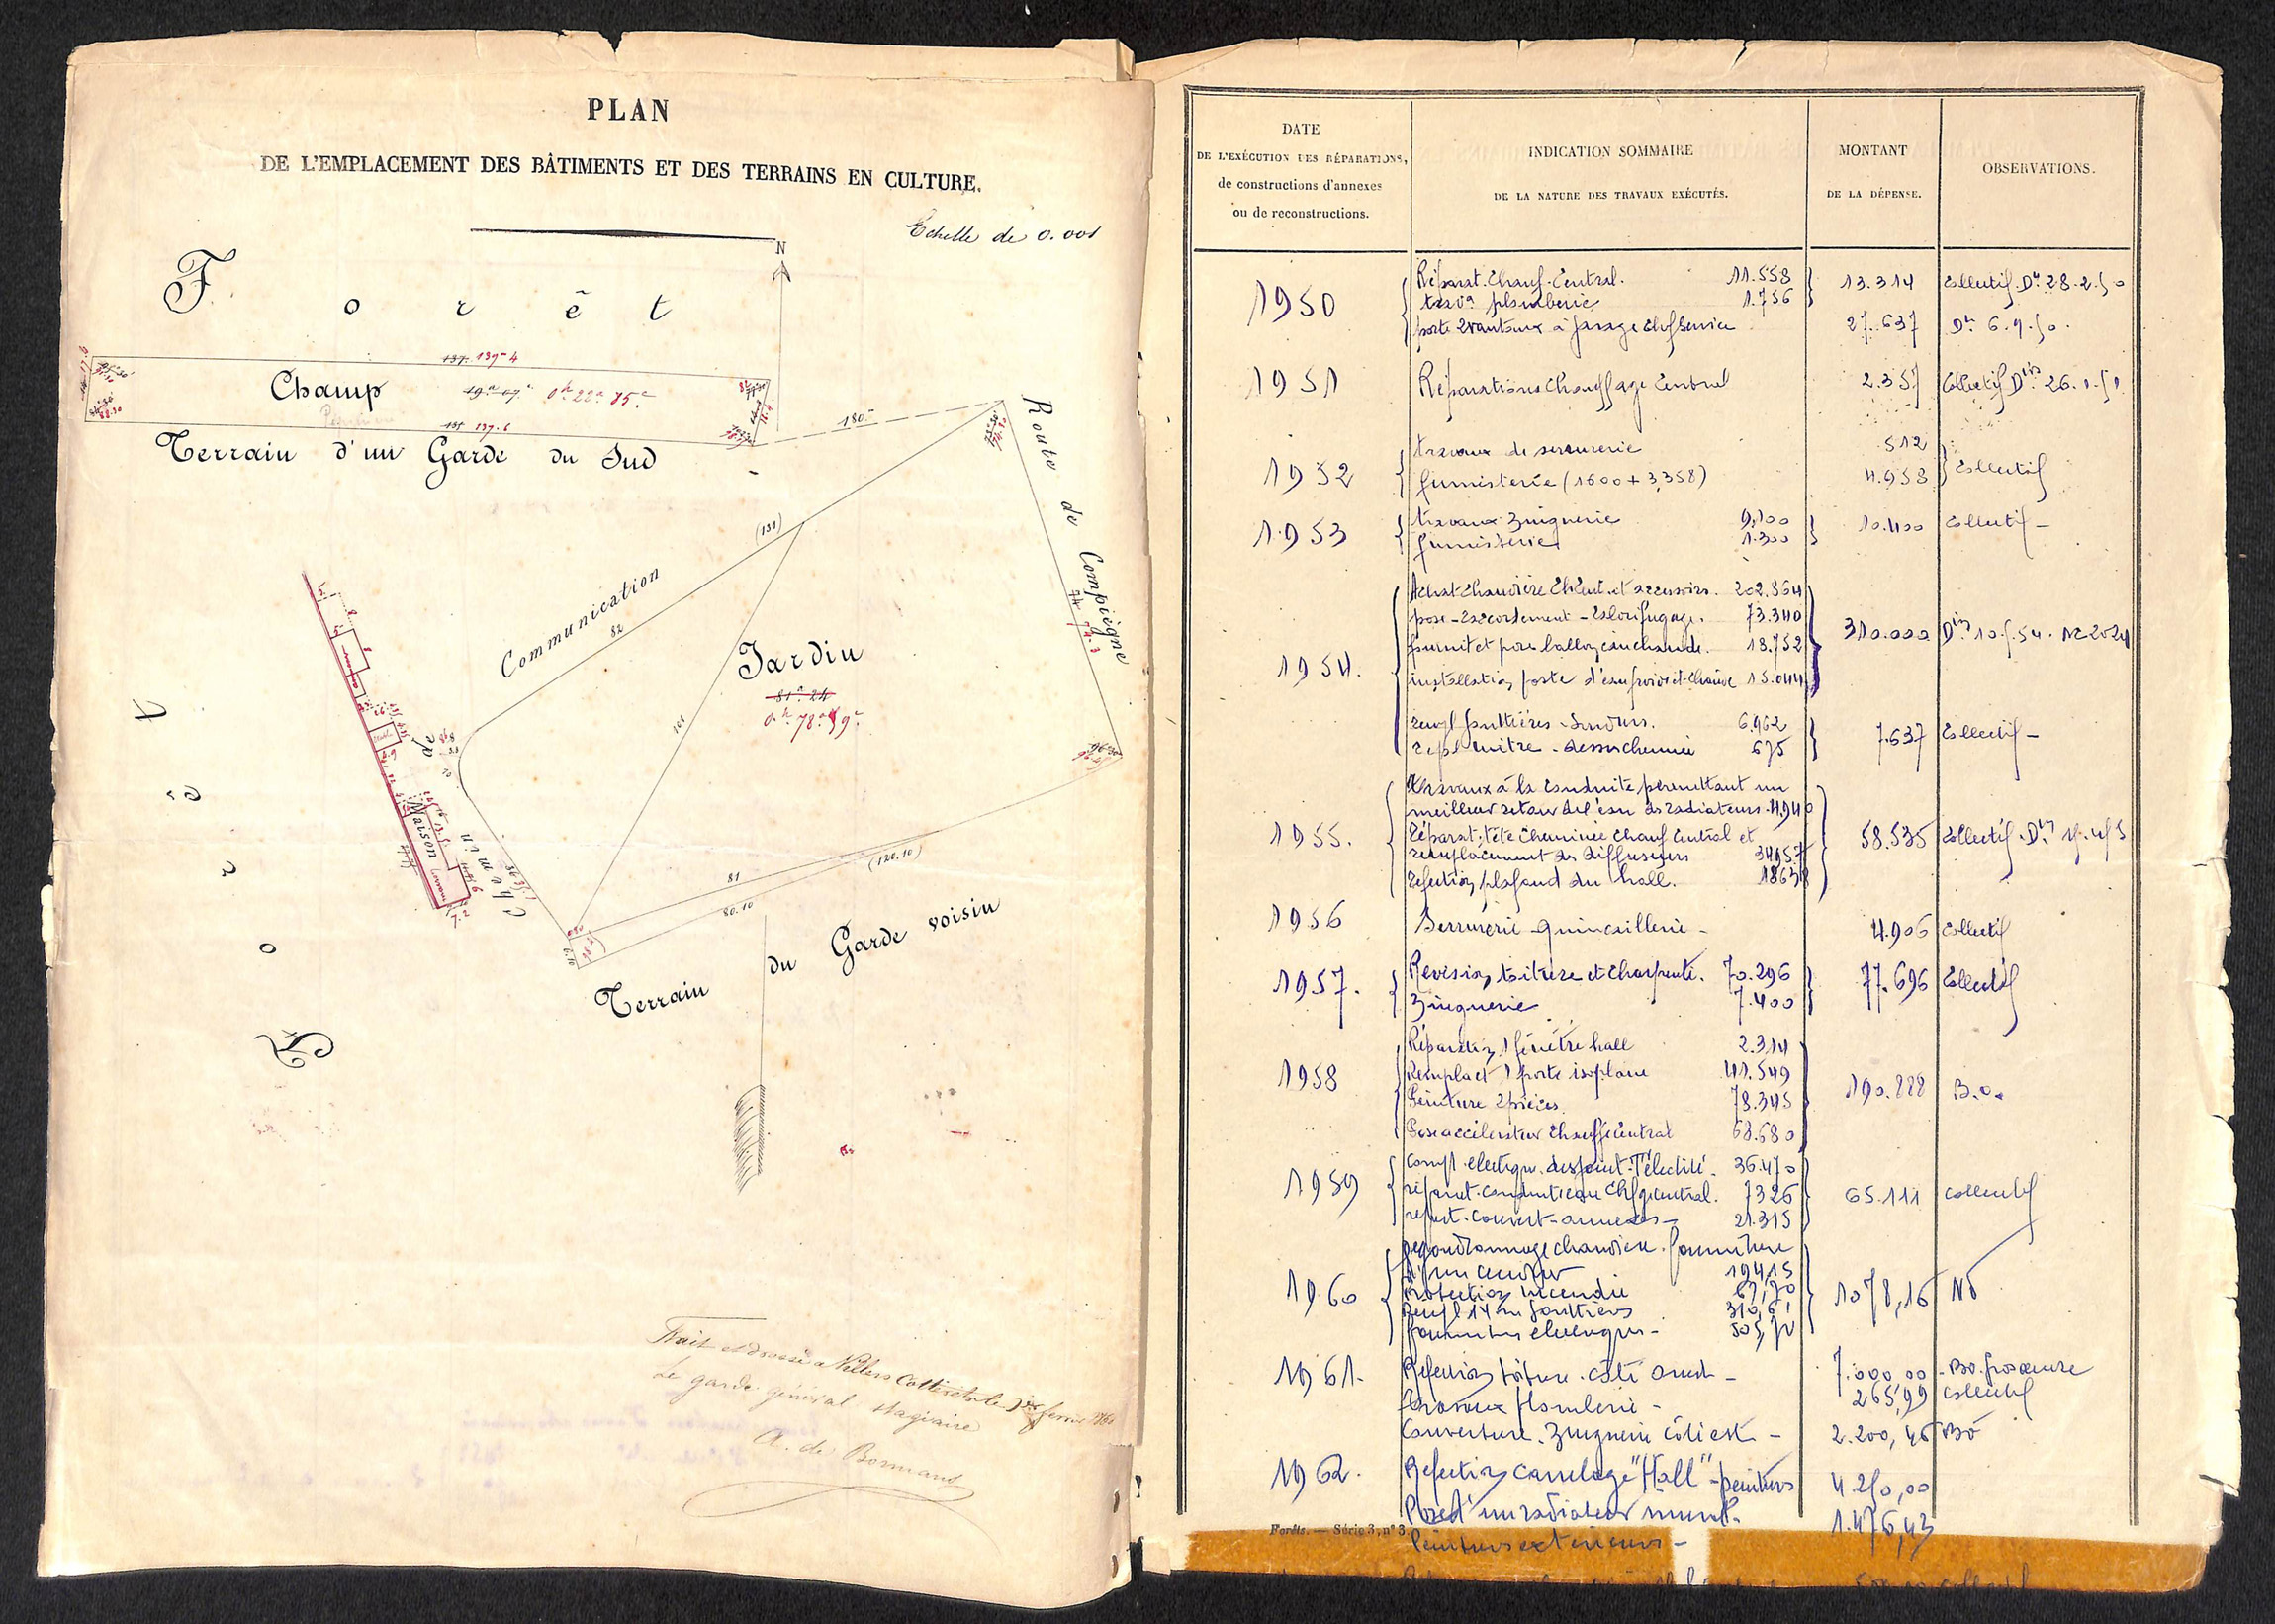 PLAN
DE L'EMPLACEMENT DES BÂTIMENTS ET DES TERRAINS EN CULTURE.
Echelle de 0.001
N
Forêt
137. 137-4
Champ
19a 07c 0h 22a 75c
135 137.6
180
Terrain d'un Garde du Sud
Route de Compiègne
74.3
(131)
Communication
82
Jardin
81a 24
0h 78a 59c
101
Maison
Chemin de
81
80.10
(120.10)
6.10
Terrain du Garde voisin
Forêt
Fait et dressé à Villers Cotterets le
Le garde général stagiaire
A. de Bormans
DATE
DE L'EXÉCUTION DES RÉPARATIONS,
de constructions d'annexes
ou de reconstructions.
INDICATION SOMMAIRE
DE LA NATURE DES TRAVAUX EXÉCUTÉS.
MONTANT
DE LA DÉPENSE.
OBSERVATIONS.
1950 Réparat. Chauf. Central. 11.558 13.314 Collectif Don 28.2.50
travx plomberie 1.756
porte 2 vantaux à garage Chef Service 27.637 Don 6.9.50.
1951 Réparations Chauffage Central 2.357 Collectif Don 26.1.51
1952 travaux de serrurerie 512 Collectif
fumisterie (1600 + 3,358) 4.958
1953 travaux zinguerie 9.100 10.400 Collectif -
fumisterie 1.300
1954. Achat Chaudière Ch Cent. et accessoirs. 202.864 310.000
pose - Raccordement - Calorifugage. 73.340
fournit et pose ballon eau chaude. 18.752
installation poste d'eau froide et chaude 15.044
rempl gouttières - Soudures. 6.962 7.637 Collectif -
repl mitre - dessus cheminée 675
1955. Travaux à la conduite permettant un
meilleur retour de l'eau des radiateurs. 4.940
Réparat. tête cheminée Chauf Central et 58.535 Collectif
remplacement des diffuseurs 34957
réfection plafond du hall. 18638
1956 Serrurerie - quincaillerie - 4.906 Collectif
1957. Revision toiture et charpente. 70.296 77.696 Collectif
Zinguerie 7.400
1958 Réparation 1 fenêtre hall 2.314
Remplact 1 porte isoplane 41.549 190.888 B.O.
Peinture 2 pièces. 78.345
Pose accélérateur Chauffe Central 68.680
1959 36.470
réparat. conduite eau Chfge central. 7326 65.111 collectif
refect. couvert - annexes - 21.315
1960 chaudière. fourniture
194,15
Protection incendie 67,70 1078,16
Rempl 14 m gouttières 310,61
fournitures électriques - 505,70
1961. Refection toiture. côté ouest - 7.000,00
Travaux plomberie - 265,99 collectif
Couverture. Zinguerie côté est - 2.200,46 BO
1962. Refection carrelage "Hall" - peintures 4.250,00
Pose d'un radiateur 1.476,43
Forêts. — Série 3, n° 3.
Peintures exterieurs -